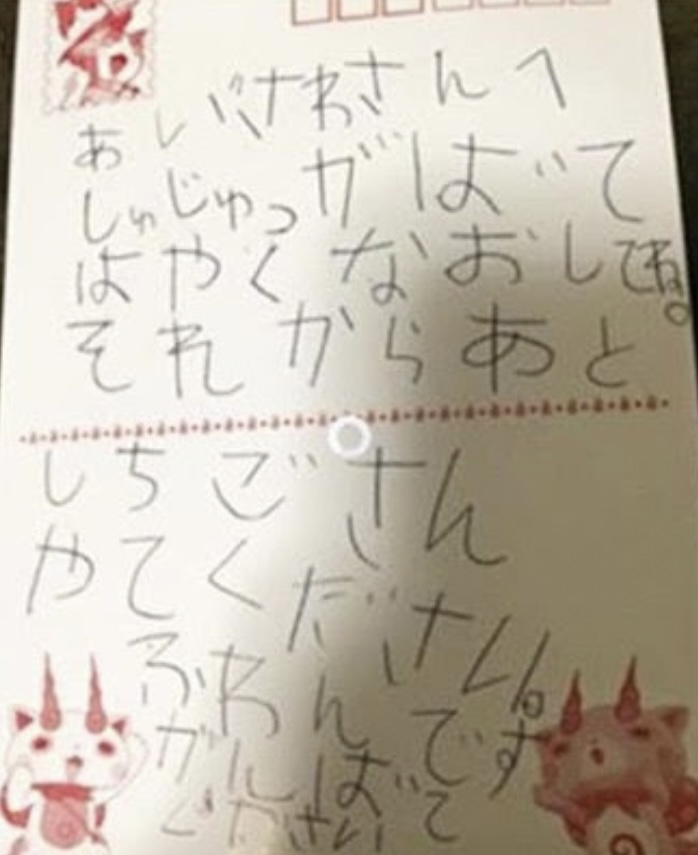 あいざわさんへ
しゅじゅつがばて
はやくなおしてね。
それからあと
しちごさん
やてください。
ふわんです
がんばて
ください